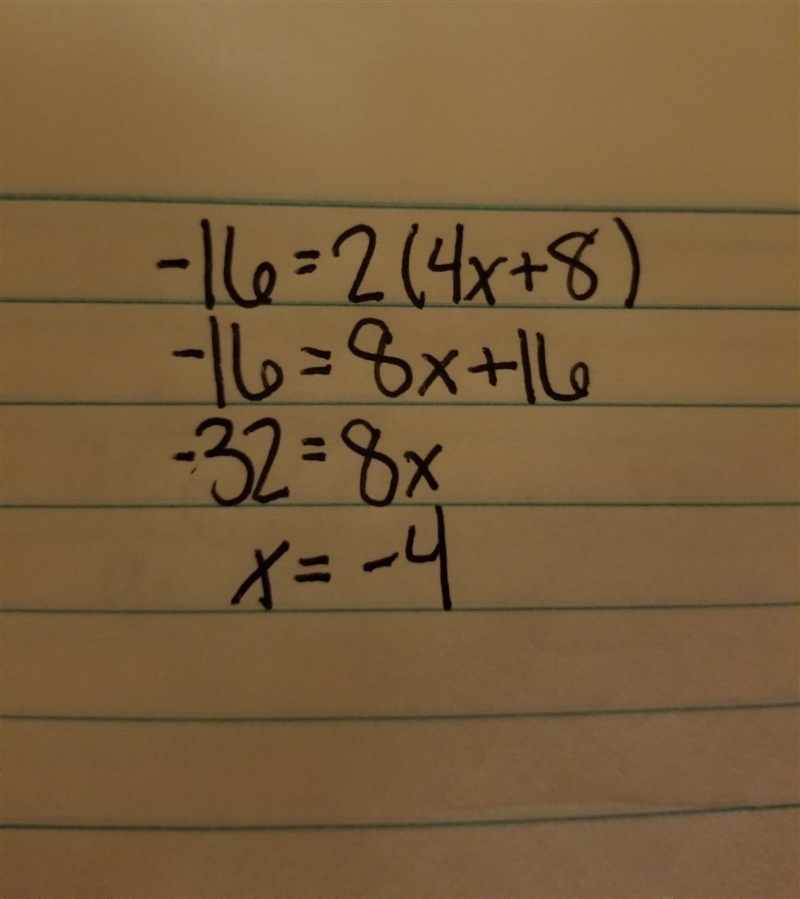 -16=2(4x+8)
-16=8x+16
-32=8x
x=-4